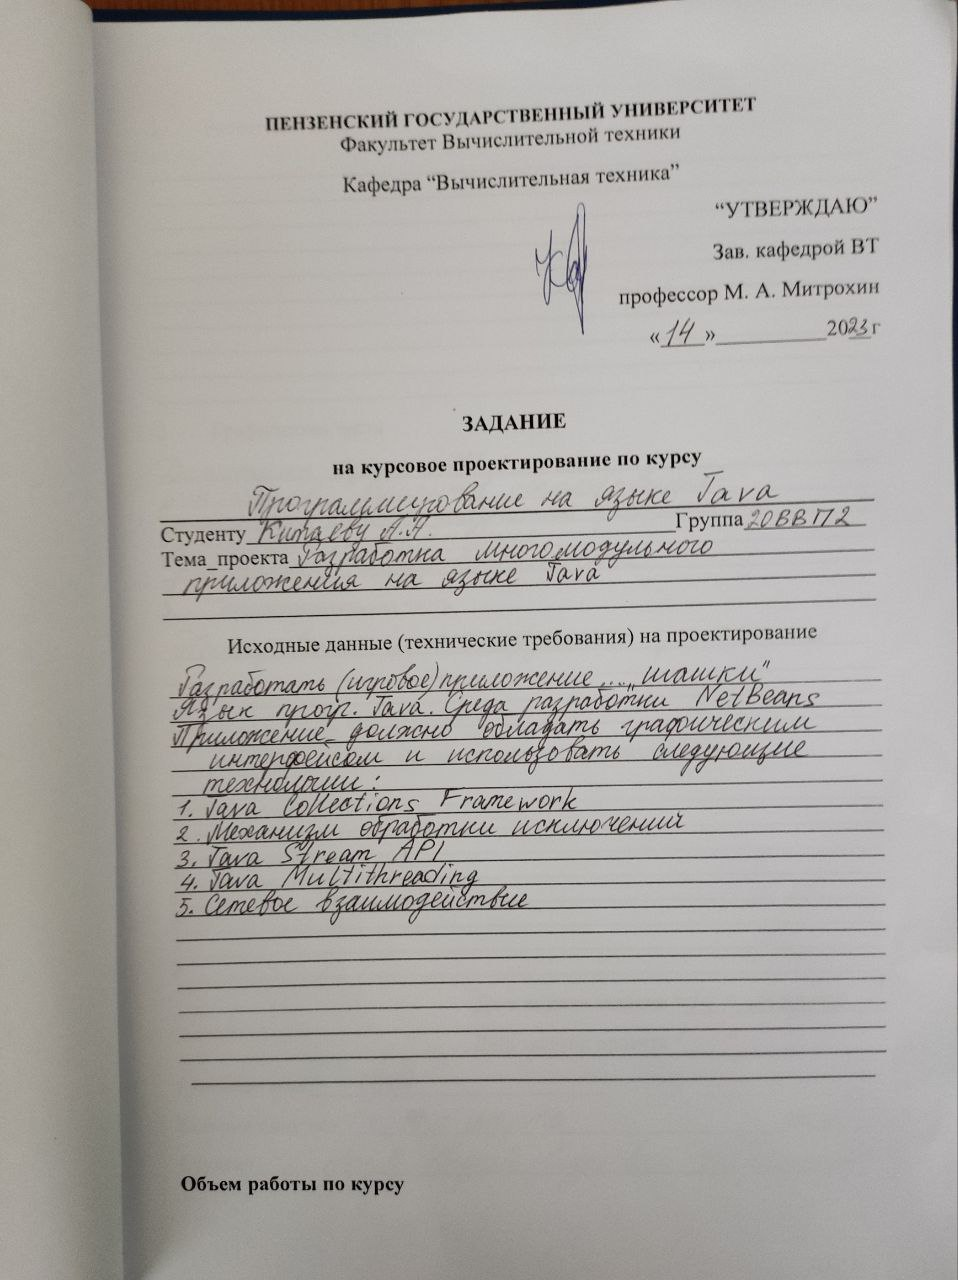 ПЕНЗЕНСКИЙ ГОСУДАРСТВЕННЫЙ УНИВЕРСИТЕТ
Факультет Вычислительной техники
Кафедра “Вычислительная техника”
“УТВЕРЖДАЮ”
Зав. кафедрой ВТ
профессор М. А. Митрохин
«14»__________2023г
ЗАДАНИЕ
на курсовое проектирование по курсу
Программирование на языке Java
Студенту Китаеву А.А. Группа 20ВВП2
Тема проекта Разработка многомодульного
приложения на языке Java
Исходные данные (технические требования) на проектирование
Разработать (игровое) приложение „шашки“
Язык прогр. Java. Среда разработки NetBeans
Приложение должно обладать графическим
интерфейсом и использовать следующие
технологии:
1. Java Collections Framework
2. Механизм обработки исключений
3. Java Stream API
4. Java Multithreading
5. Сетевое взаимодействие
Объем работы по курсу